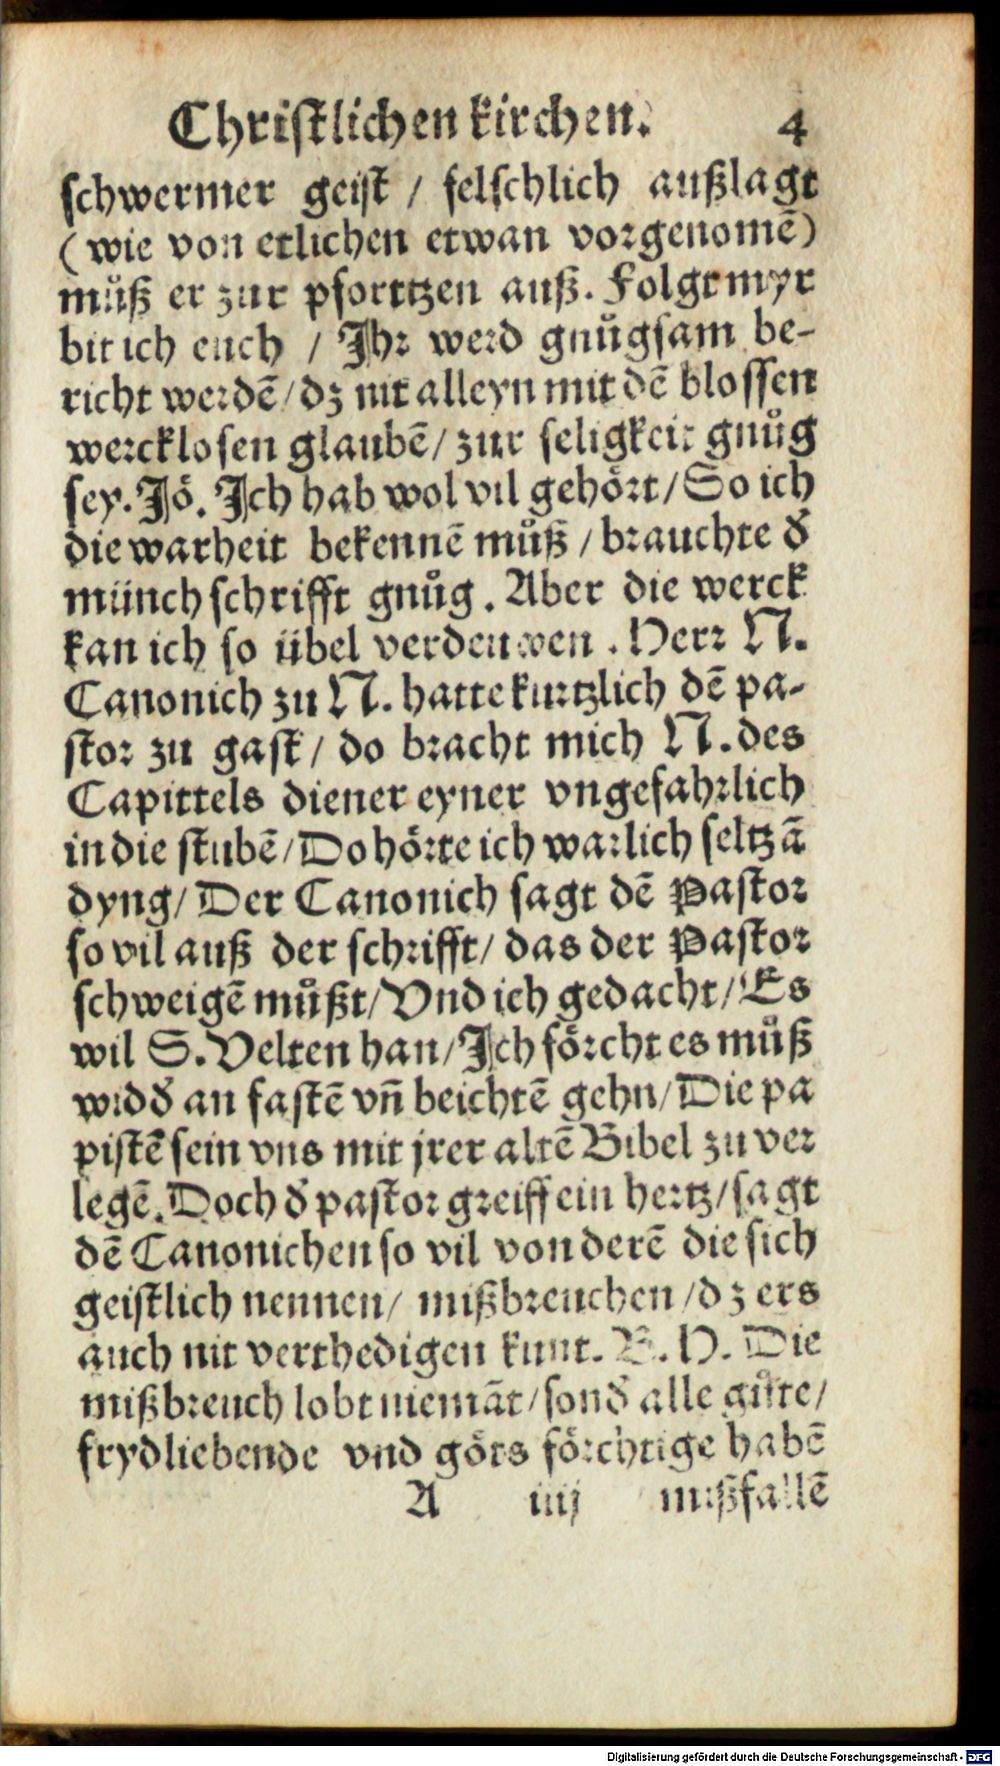 Christlichen kirchen. 4
schwermer geist / felschlich außlagt
(wie von etlichen etwan vorgenomē)
muͦß er zur pforttzen auß. Folgt myr
bit ich euch / Ihr werd gnuͦgsam be-
richt werdē / dz nit alleyn mit dē blossen
wercklosen glaubē / zur seligkeit gnuͦg
sey. Jö. Ich hab wol vil gehört / So ich
die warheit bekennē muͦß / brauchte d̕
münch schrifft gnuͦg. Aber die werck
kan ich so übel verdeuwen. Herr N.
Canonich zu N. hatte kurtzlich dē pa-
stor zu gast / do bracht mich N. des
Capittels diener eyner vngefahrlich
in die stubē / Do hörte ich warlich seltzā
dyng / Der Canonich sagt dē Pastor
so vil auß der schrifft / das der Pastor
schweigē muͦßt / Vnd ich gedacht / Es
wil S. Velten han / Ich förcht es muͦß
widd̕ an fastē vn̄ beichtē gehn / Die pa
pistē sein vns mit jrer altē Bibel zu ver
legē. Doch d̕ pastor greiff ein hertz / sagt
dē Canonichen so vil von derē die sich
geistlich nennen / mißbreuchen / dz ers
auch nit verthedigen kunt. B. H. Die
mißbreuch lobt niemāt / sond̕ alle guͦte /
frydliebende vnd göts förchtige habē
A iiij mißfallē
Digitalisierung gefördert durch die Deutsche Forschungsgemeinschaft - DFG